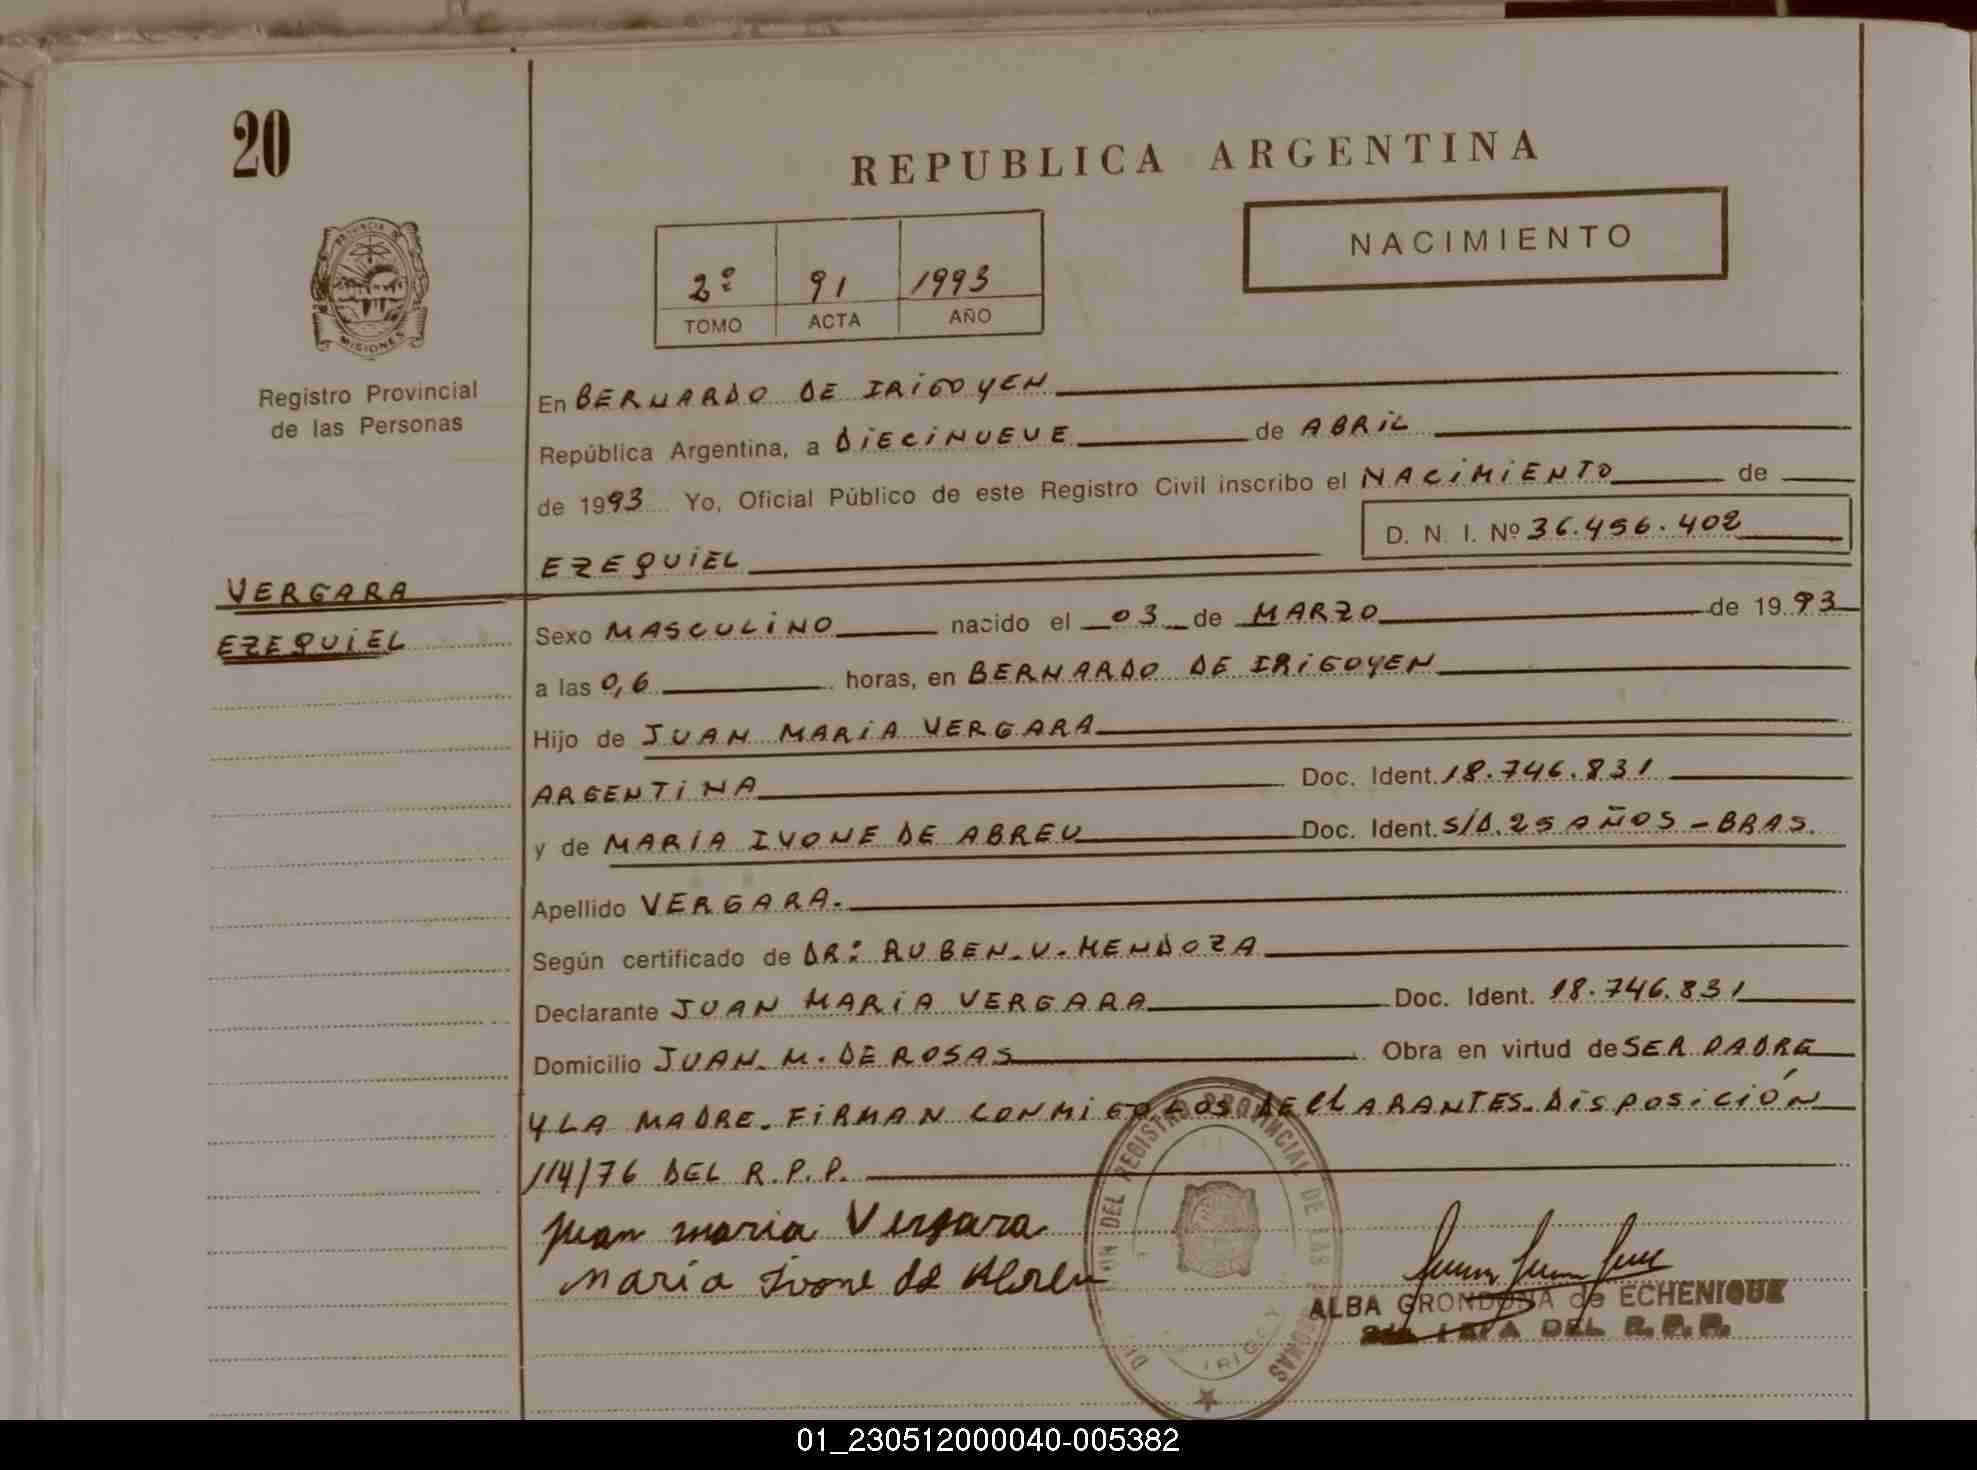 20
REPUBLICA ARGENTINA
NACIMIENTO
2º 91 1993
TOMO ACTA AÑO
PROVINCIA DE
MISIONES
Registro Provincial
de las Personas
En BERNARDO DE IRIGOYEN
República Argentina, a DIECINUEVE de ABRIL
de 1993 Yo, Oficial Público de este Registro Civil inscribo el NACIMIENTO de
D. N. I. Nº 36.456.402
EZEQUIEL
VERGARA
EZEQUIEL
Sexo MASCULINO nacido el 03 de MARZO de 1993
a las 0,6 horas, en BERNARDO DE IRIGOYEN
Hijo de JUAN MARIA VERGARA
ARGENTINA Doc. Ident. 18.746.831
y de MARIA IVONE DE ABREU Doc. Ident. S/D. 25 AÑOS - BRAS.
Apellido VERGARA.
Según certificado de DR: RUBEN. U. MENDOZA
Declarante JUAN MARIA VERGARA Doc. Ident. 18.746.831
Domicilio JUAN. M. DE ROSAS Obra en virtud de SER PADRE
Y LA MADRE. FIRMAN CONMIGO LOS DECLARANTES. DISPOSICIÓN
114/76 DEL R.P.P.
Juan maria Vergara
Maria Ivone de Abreu
DEL REGISTRO PROVINCIAL DE LAS
ALBA GRONDONA de ECHENIQUE
DEL R.P.P.
01_230512000040-005382